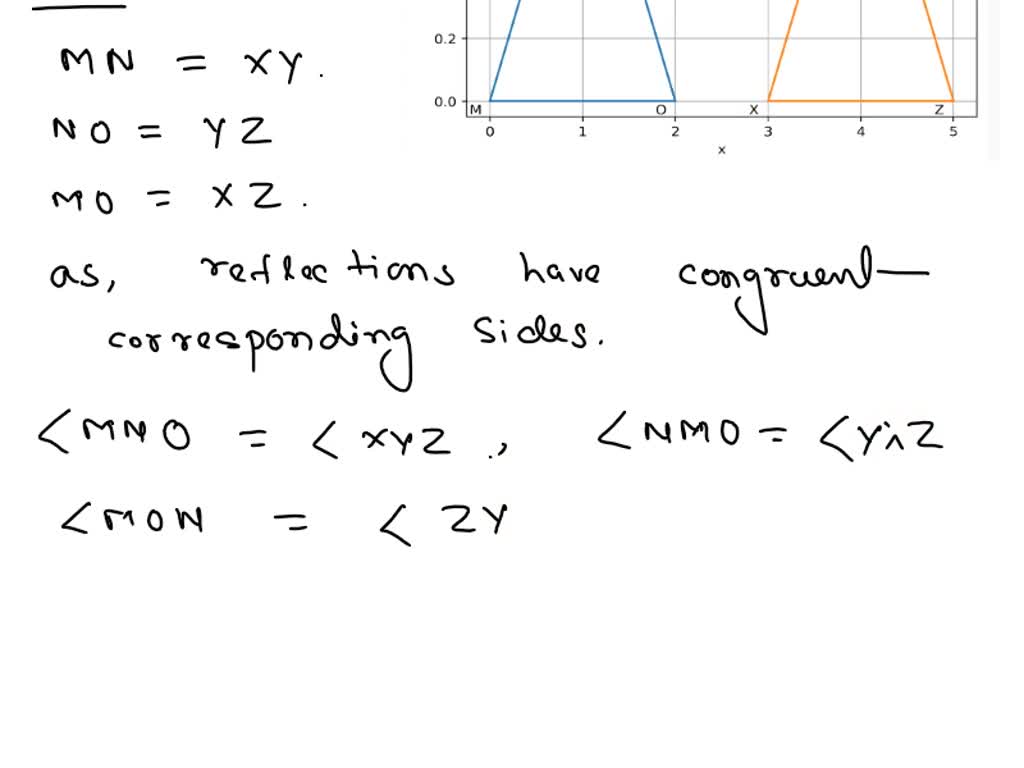 MN = XY.
NO = YZ
MO = XZ.
as, reflections have congruent
corresponding sides.
<MNO = <XYZ ., <NMO = <YXZ
<MON = <ZY
0.2
0.0
M O X Z
0 1 2 3 4 5
x